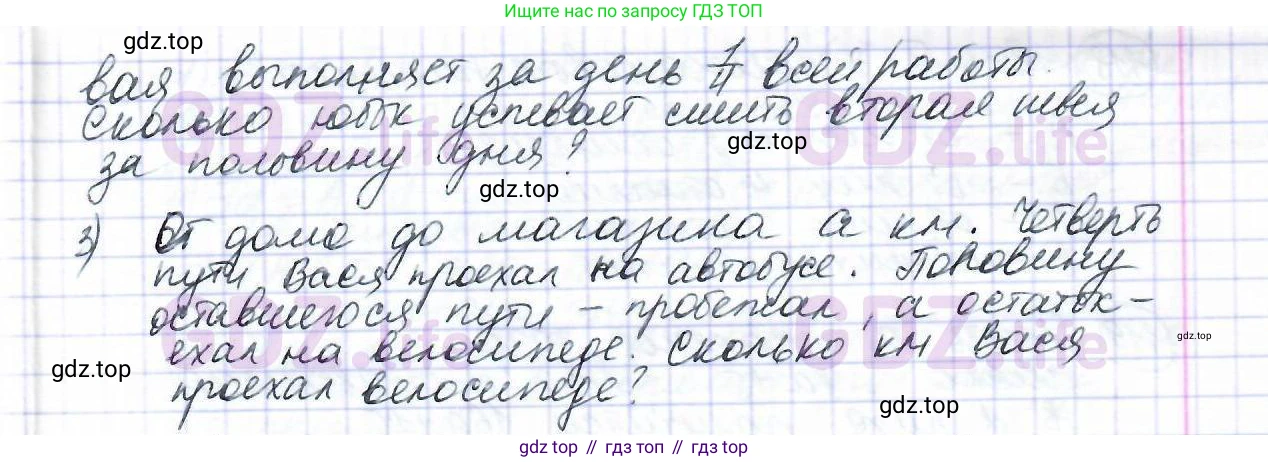 Ищите нас по запросу ГДЗ ТОП
gdz.top
вая выполняет за день 1/11 всей работы.
Сколько юбок успевает сшить вторая швея
за половину дня?
gdz.top
gdz.top
3) От дома до магазина а км. Четверть
пути Вася проехал на автобусе. Половину
оставшегося пути – пробежал, а остаток –
gdz.top
ехал на велосипеде. Сколько км Вася
gdz.top
проехал велосипеде?
gdz.top
GDZ.life
GDZ.life
GDZ.life
GDZ.life
gdz.top // гдз топ // гдз.top